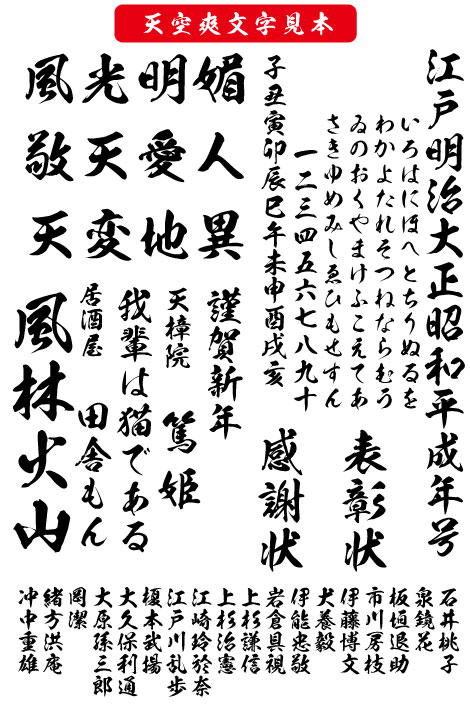 天空爽文字見本
江戸明治大正昭和平成年号
いろはにほへとちりぬるを
わかよたれそつねならむう
ゐのおくやまけふこえてあ
さきゆめみしゑひもせすん
一二三四五六七八九十
子丑寅卯辰巳午未申酉戌亥
媚人異
明愛地
光天変
風敬天
表彰状
感謝状
謹賀新年
天樟院 篤姫
我輩は猫である
居酒屋 田舎もん
風林火山
石井桃子
泉鏡花
板垣退助
市川房枝
伊藤博文
犬養毅
伊能忠敬
岩倉具視
上杉謙信
上杉治憲
江崎玲於奈
江戸川乱歩
榎本武揚
大久保利通
大原孫三郎
岡潔
緒方洪庵
冲中重雄